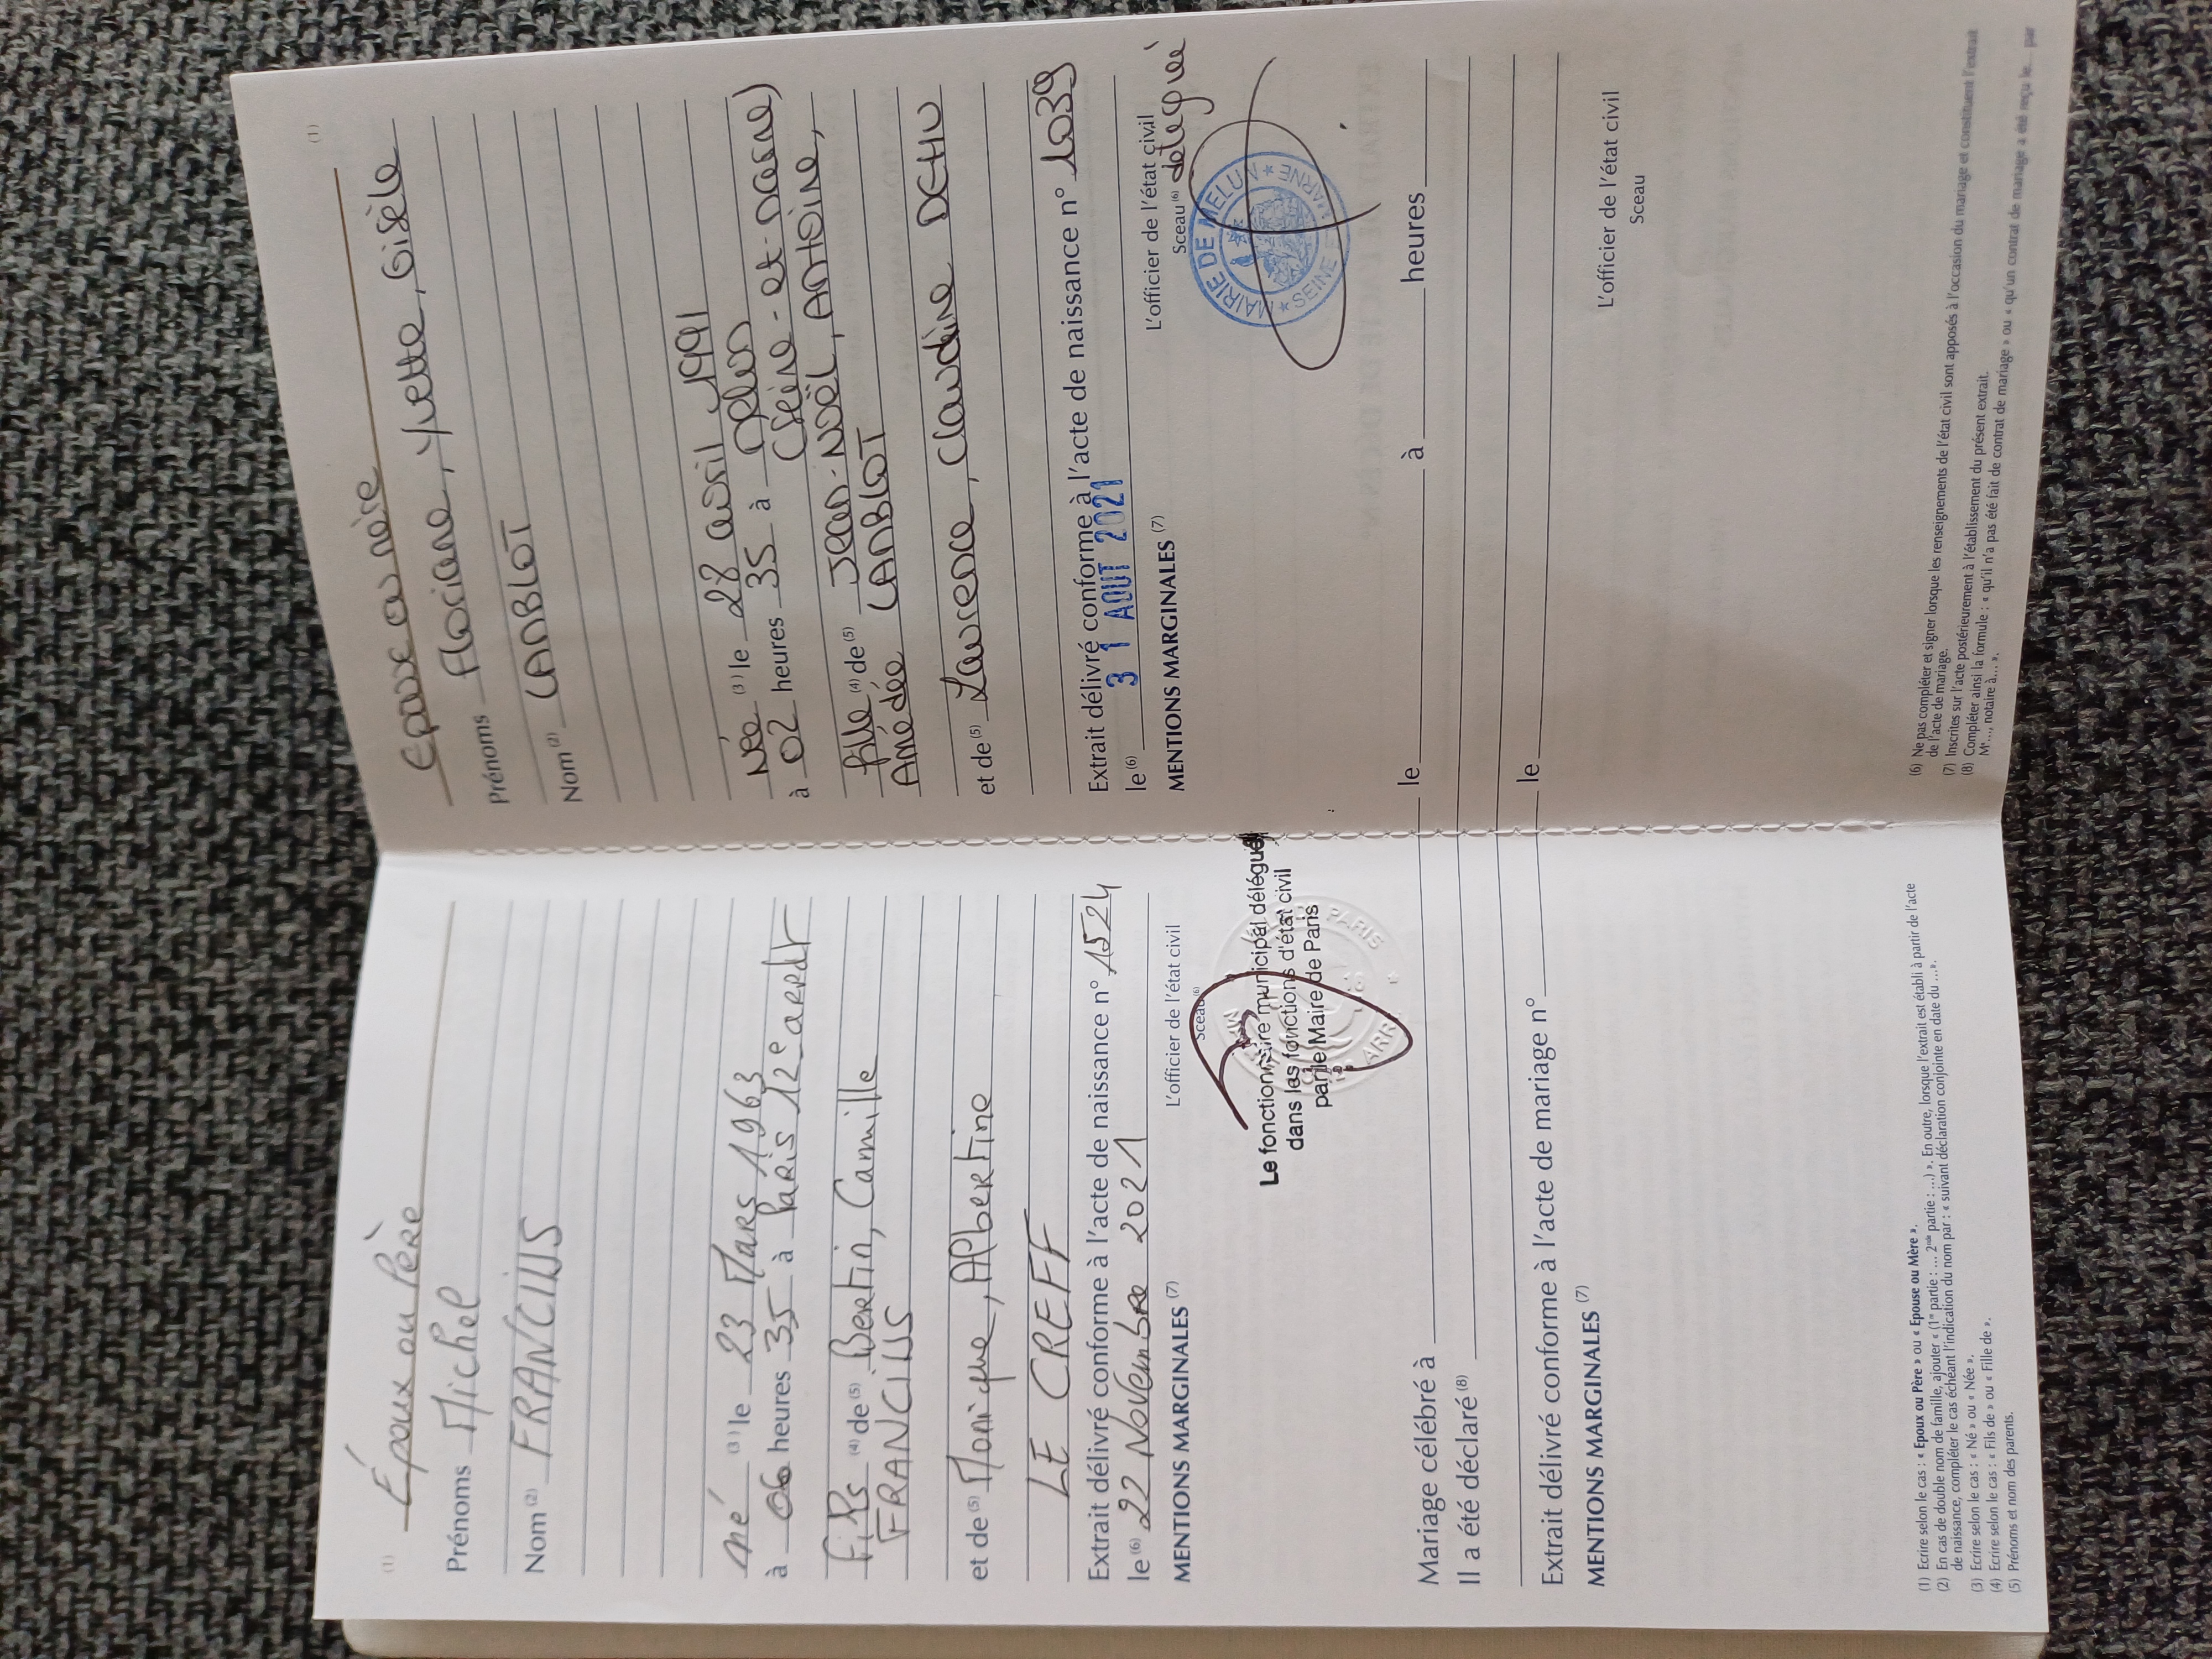 (1) Époux ou Père
Prénoms Michel
Nom (2) FRANCIUS
né (3) le 23 Mars 1963
à 06 heures 35 à Paris 12e arrdt
Fils (4) de (5) Bertin, Camille
FRANCIUS
et de (5) Monique, Albertine
LE CREFF
Extrait délivré conforme à l'acte de naissance n° 1524
le (6) 22 Novembre 2021
L'officier de l'état civil
Sceau (6)
MENTIONS MARGINALES (7)
Le fonctionnaire municipal délégué
dans les fonctions d'état civil
par le Maire de Paris
PARIS
ARR
(1)
Epouse ou mère
Prénoms Floriane, Yvette, Gisèle
Nom (2) LANBLOT
Née (3) le 28 avril 1991
à 02 heures 35 à Melun
(Seine-et-Marne)
fille (4) de (5) Jean-Noël, Antoine,
Amédée LANBLOT
et de (5) Laurence, Claudine DEHU
Extrait délivré conforme à l'acte de naissance n° 1039
le (6) 31 AOUT 2021
L'officier de l'état civil
Sceau (6) délégué
MENTIONS MARGINALES (7)
MAIRIE DE MELUN
* SEINE & MARNE *
Mariage célébré à le à heures
Il a été déclaré (8)
Extrait délivré conforme à l'acte de mariage n° le
MENTIONS MARGINALES (7)
L'officier de l'état civil
Sceau
(1) Ecrire selon le cas : « Epoux ou Père » ou « Epouse ou Mère ».
(2) En cas de double nom de famille, ajouter « (1re partie : ... 2nde partie : ...) ». En outre, lorsque l'extrait est établi à partir de l'acte
de naissance, compléter le cas échéant l'indication du nom par : « suivant déclaration conjointe en date du ...».
(3) Ecrire selon le cas : « Né » ou « Née ».
(4) Ecrire selon le cas : « Fils de » ou « Fille de ».
(5) Prénoms et nom des parents.
(6) Ne pas compléter et signer lorsque les renseignements de l'état civil sont apposés à l'occasion du mariage et constituent l'extrait
de l'acte de mariage.
(7) Inscrites sur l'acte postérieurement à l'établissement du présent extrait.
(8) Compléter ainsi la formule : « qu'il n'a pas été fait de contrat de mariage » ou « qu'un contrat de mariage a été reçu le... par
Me..., notaire à... ».